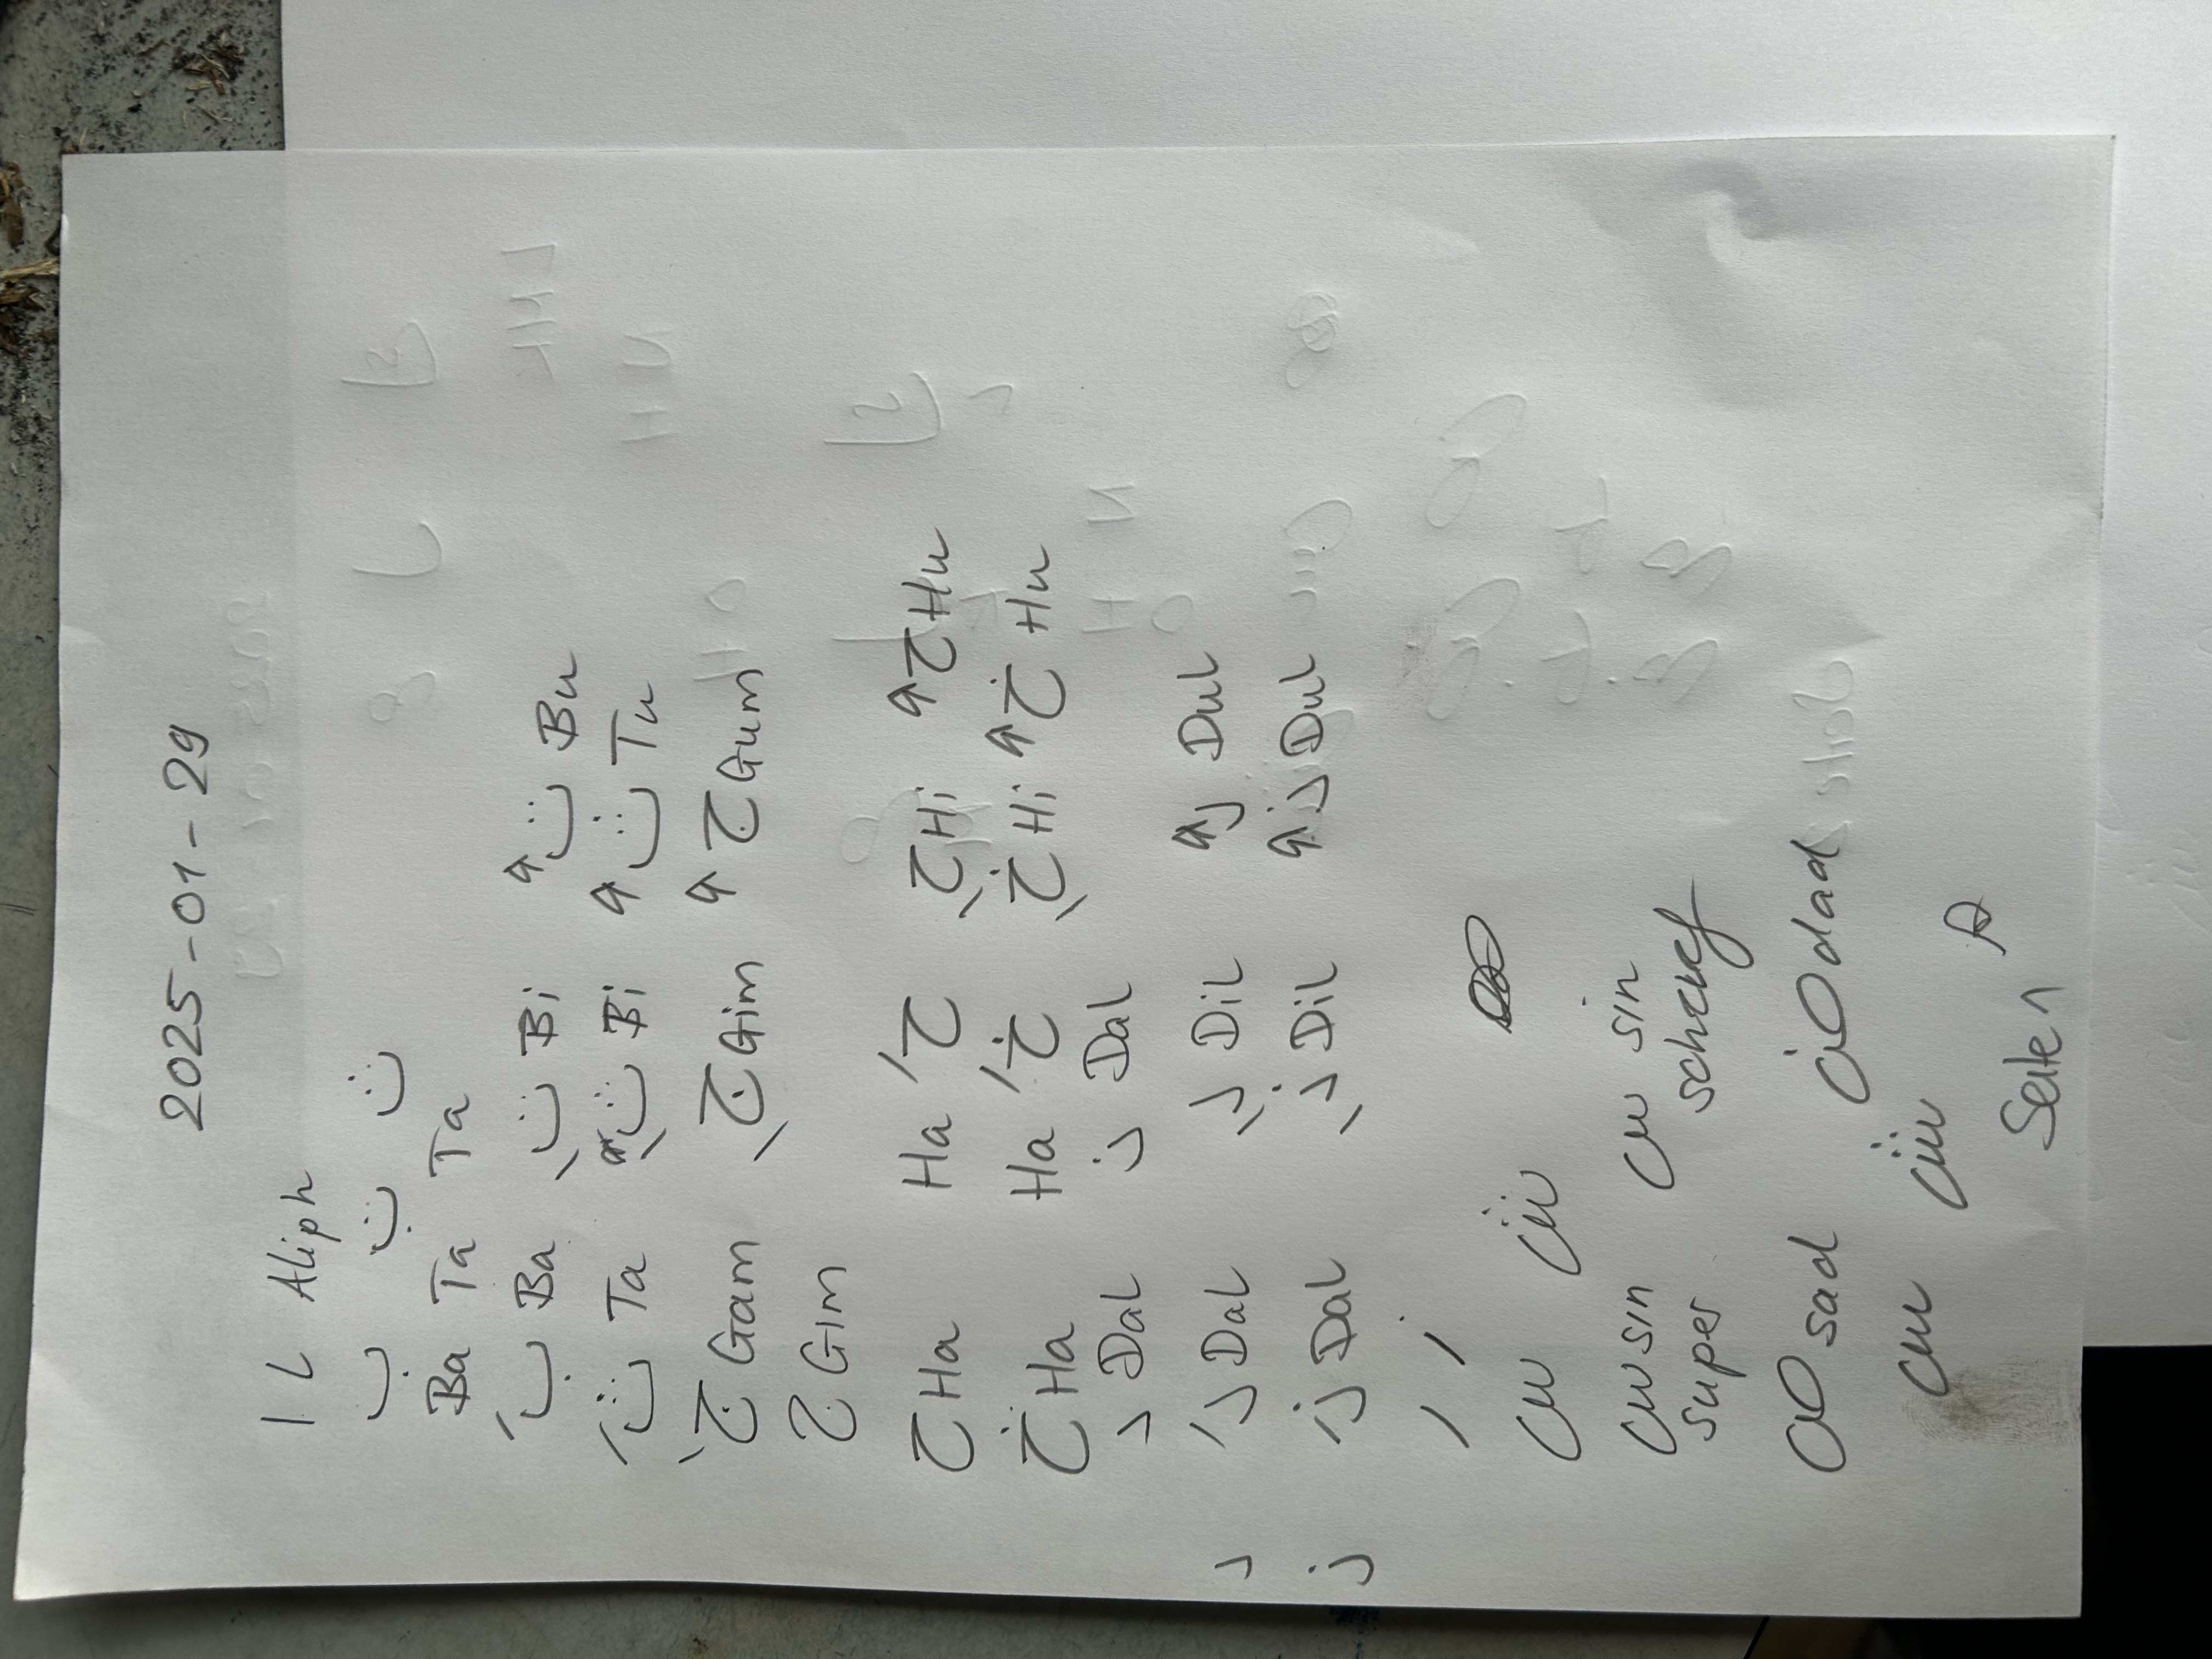 2025-01-29
ا ل Aliph
ب ت ث
Ba Ta Ta
بَ Ba تِ Bi تُ Bu
ثَ Ta ثِ Bi ثُ Tu
جَ Gam جِ Gim جُ Gum
ج Gim
ح Ha Ha حَ حِ Hi حُ Hu
خ Ha Ha خَ خِ Hi خُ Hu
د Dal ذ Dal
د دَ Dal دِ Dil دُ Dul
ذ ذَ Dal ذِ Dil ذُ Dul
ر ز
س ش
س sin س sin
super scharf
ص sad ض dad
س ش
Seite 1